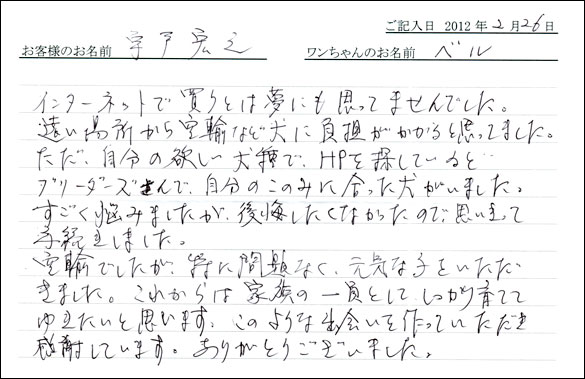 ご記入日 2012年2月26日
お客様のお名前 宇戸宏之 ワンちゃんのお名前 ベル
インターネットで買うとは夢にも思ってませんでした。
遠い場所から空輸など犬に負担がかかると思ってました。
ただ、自分の欲しい犬種で、HPを探していると
ブリーダーズさんで、自分のこのみに合った犬がいました。
すごく悩みましたが、後悔したくなかったので、思い立って
手続きしました。
空輸でしたが、特に問題なく、元気な子をいただ
きました。これからは家族の一員として、しっかり育てて
ゆきたいと思います。このような出会いを作っていただき
感謝しています。ありがとうございました。